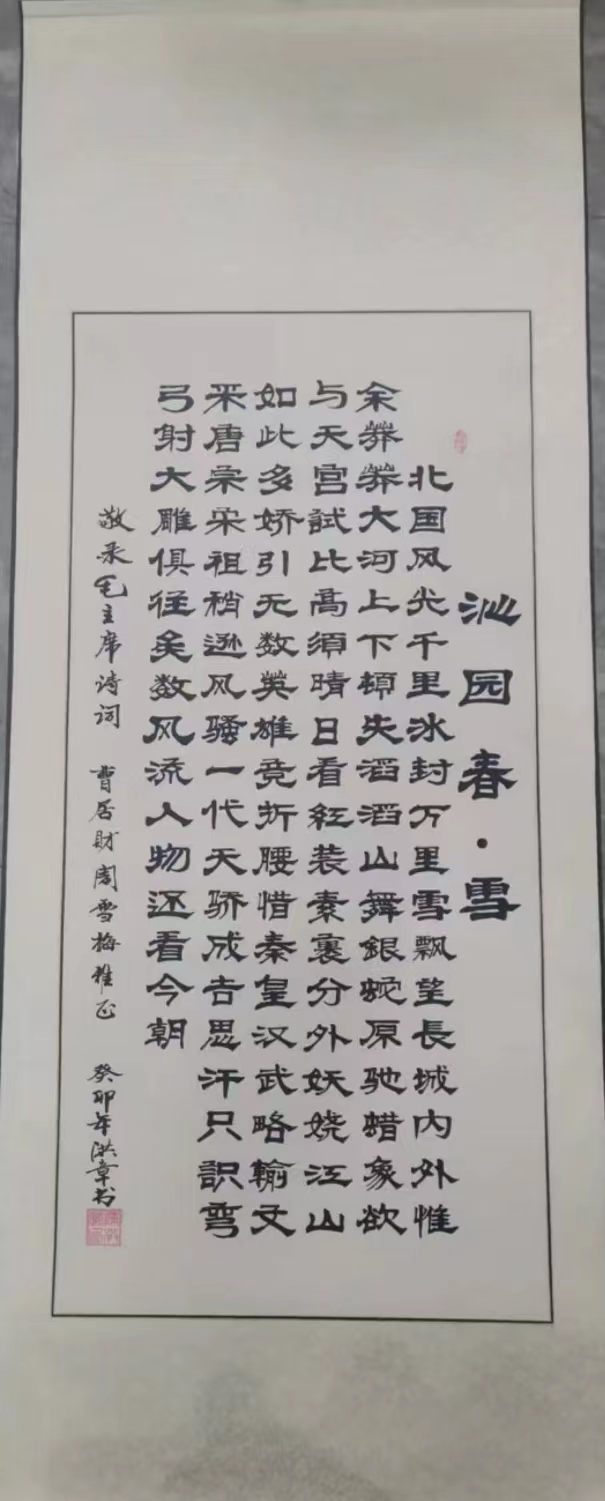 沁园春·雪
北国风光千里冰封万里雪飘望長城内外惟
余莽莽大河上下頓失滔滔山舞銀蛇原驰蜡象欲
与天宫試比高須晴日看紅装素裹分外妖娆江山
如此多娇引无数英雄竞折腰惜秦皇汉武略輸文
采唐宗宋祖稍逊风骚一代天骄成吉思汗只識弯
弓射大雕俱往矣数风流人物还看今朝
敬录毛主席诗词 曹居財周雪梅雅正 癸卯年洪章书